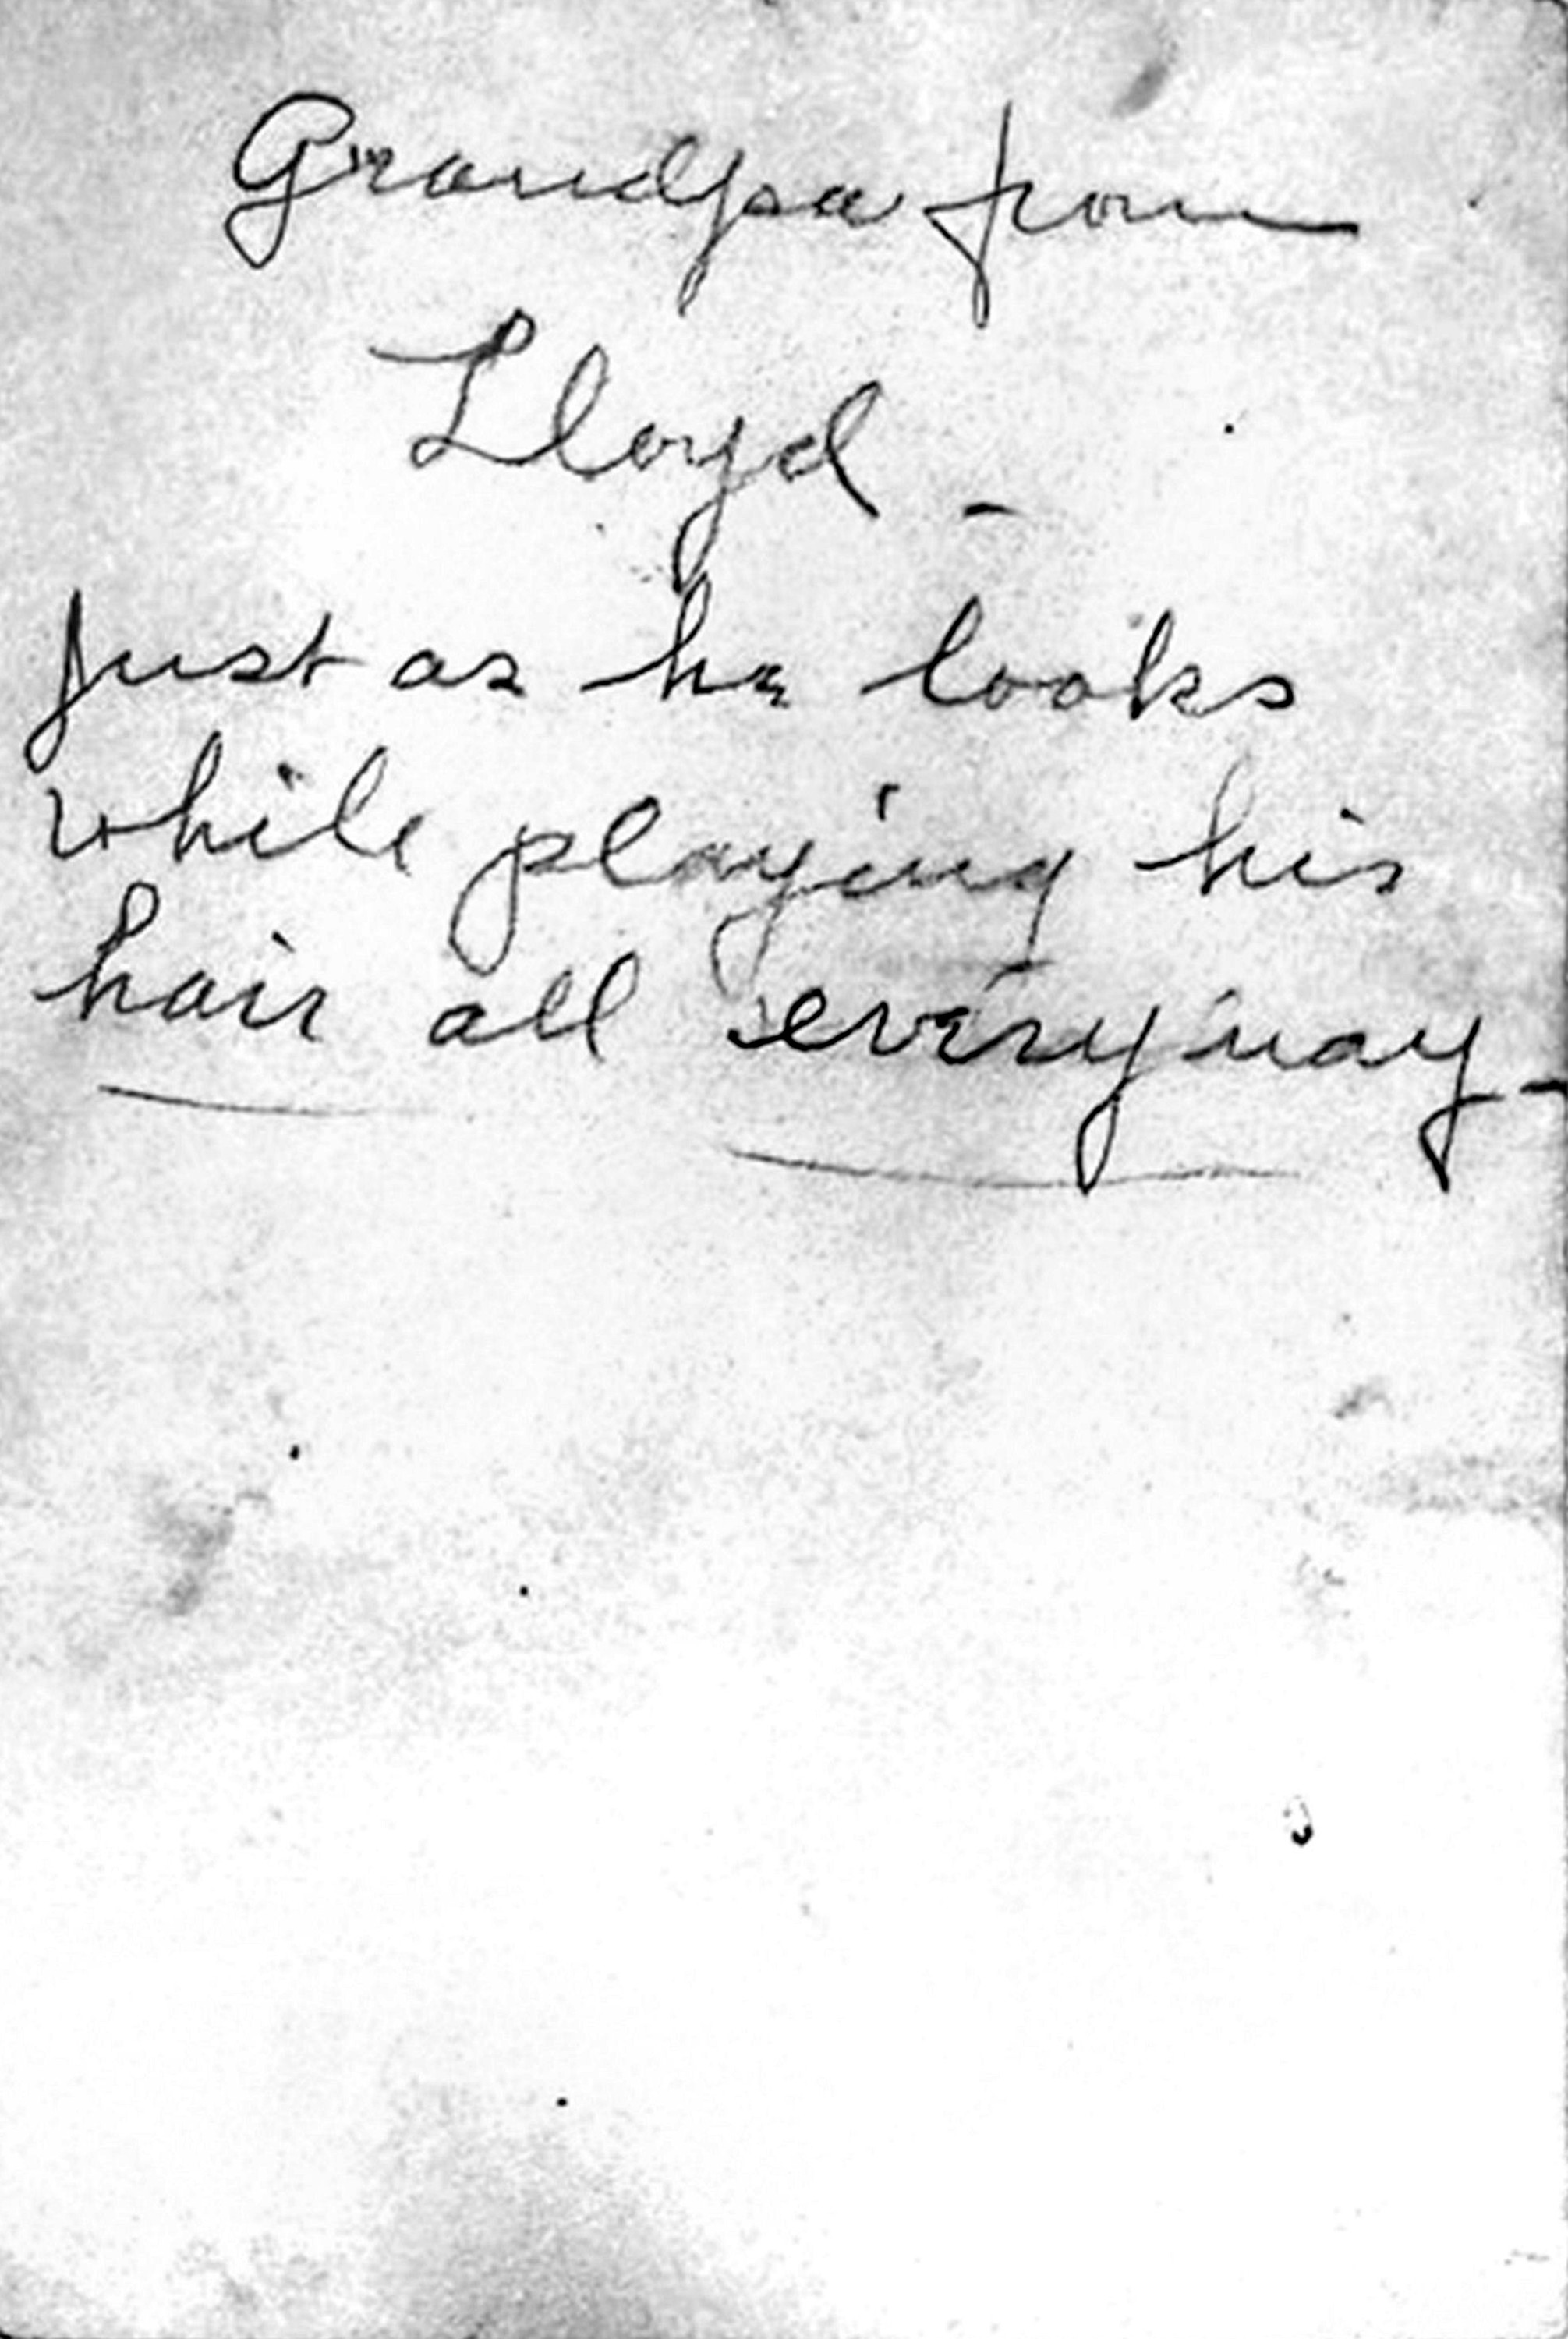 Grandpa from
Lloyd -
just as he looks
while playing his
hair all everyway -